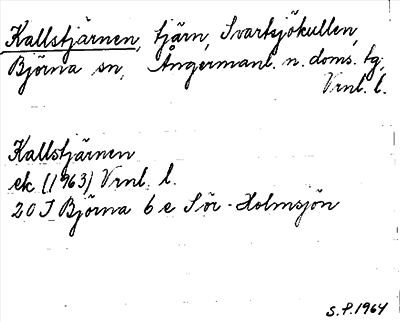 Kallstjärnen, tjärn, Svartsjökullen,
Björna sn, Ångermanl. n. doms. tg,
Vrnl. l.
Kallstjärnen
ek (1963) Vrnl. l.
20 I Björna 6 e Sör-Holmsjön
S.P. 1964